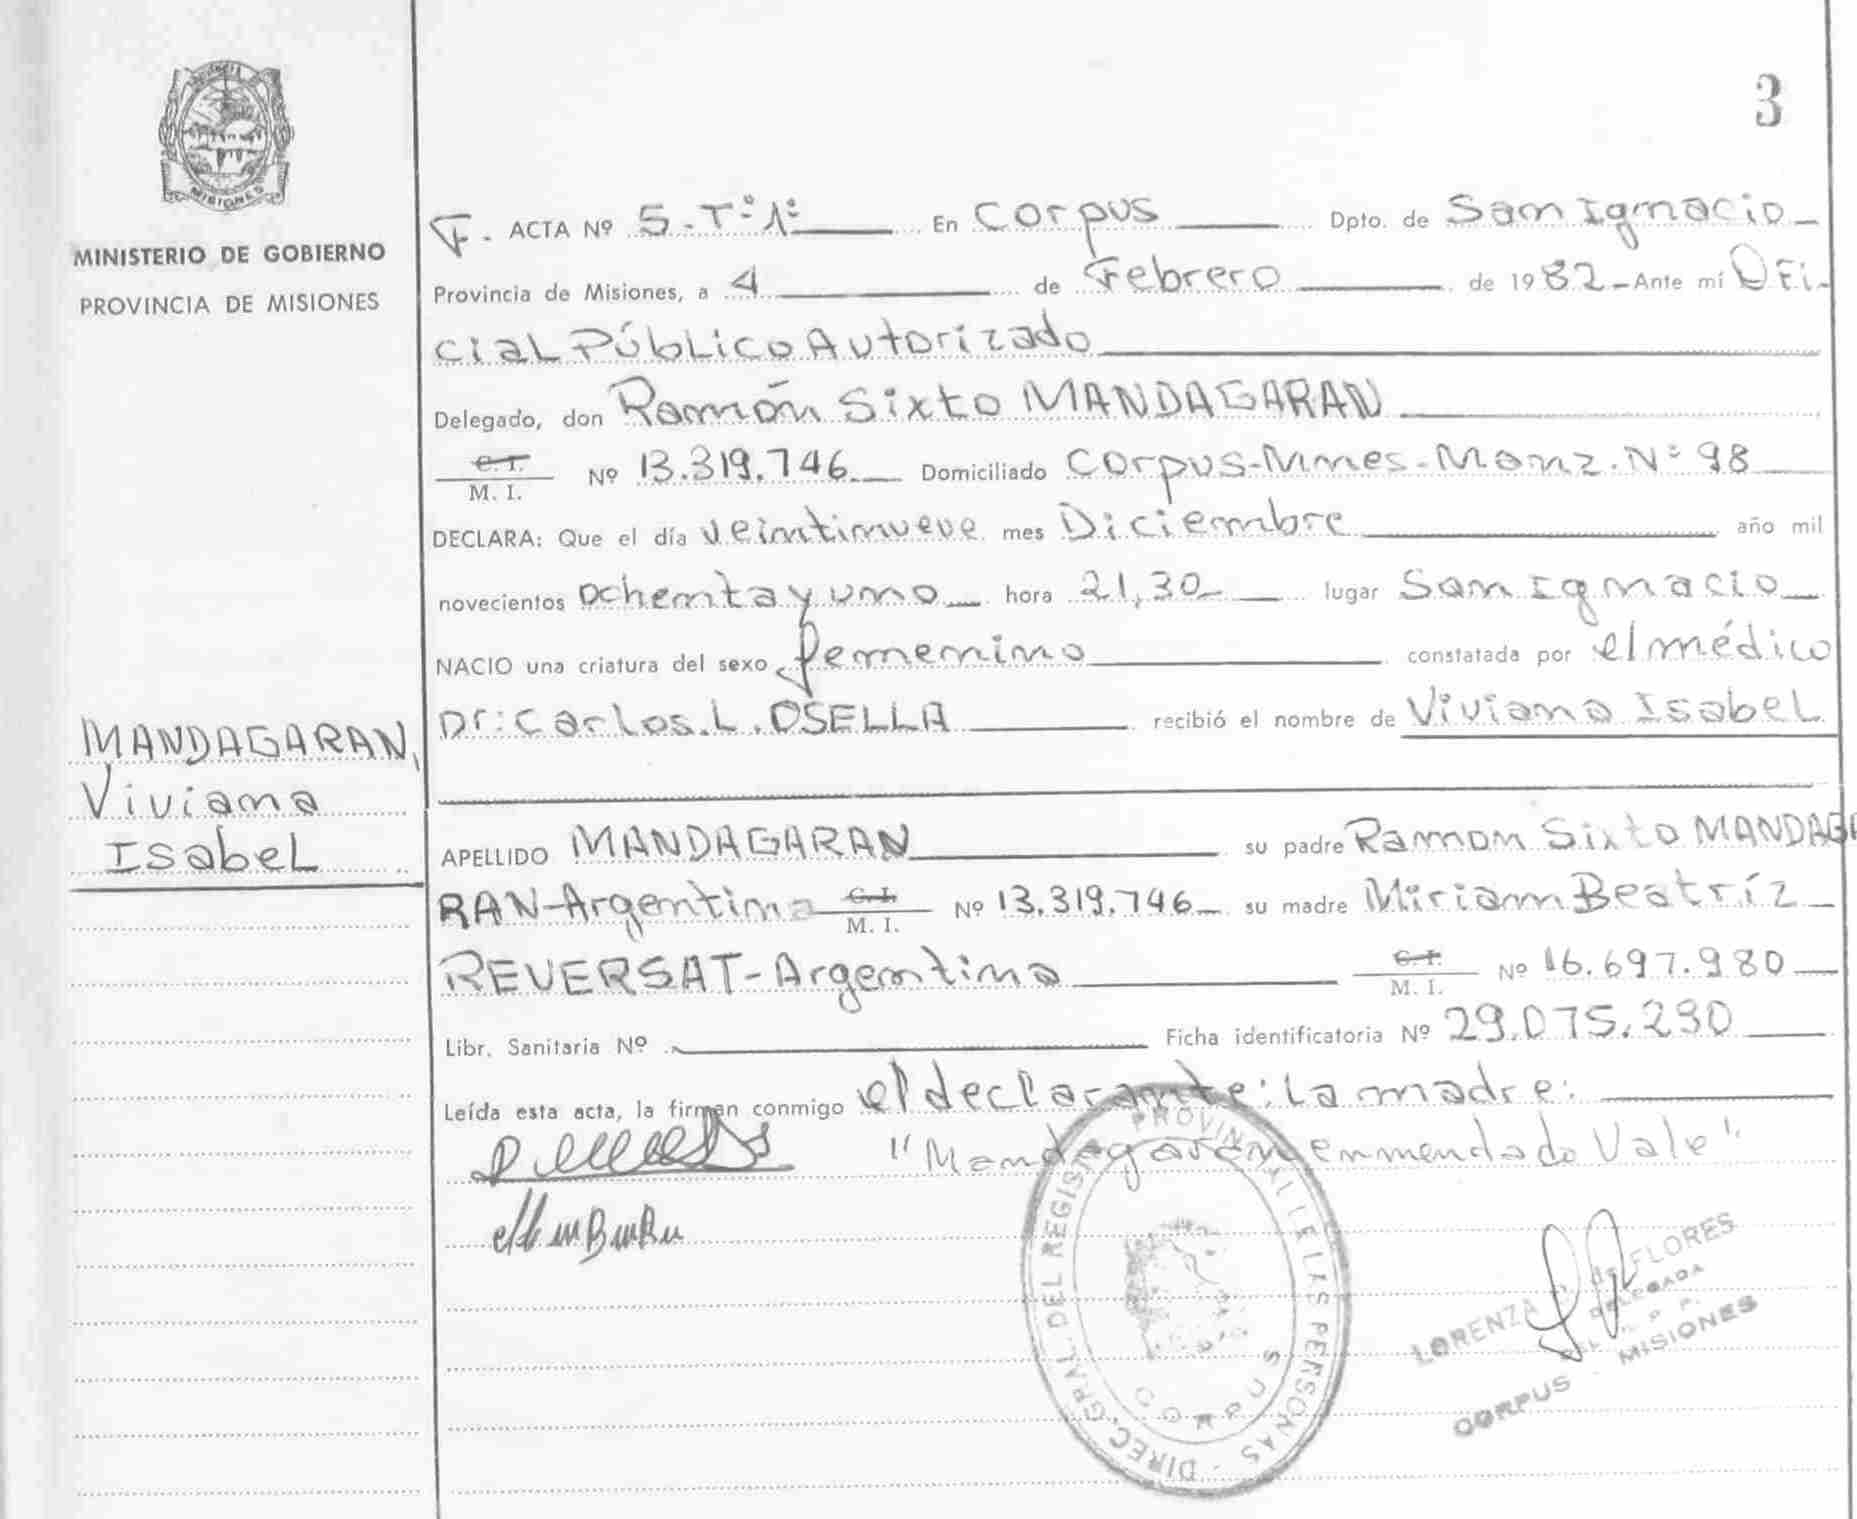 3
MISIONES
MINISTERIO DE GOBIERNO
PROVINCIA DE MISIONES
MANDAGARAN,
Viviana
Isabel
F. ACTA Nº 5.Tº1º En Corpus Dpto. de San Ignacio
Provincia de Misiones, a 4 de Febrero de 1982 Ante mí Ofi-
cial Público Autorizado
Delegado, don Ramón Sixto MANDAGARAN
C. I. M. I. Nº 13.319.746 Domiciliado Corpus-Mnes-Manz.Nº 98
DECLARA: Que el día veintinueve mes Diciembre año mil
novecientos ochenta y uno hora 21,30 lugar San Ignacio
NACIO una criatura del sexo femenino constatada por el médico
Dr: Carlos.L.OSELLA recibió el nombre de Viviana Isabel
APELLIDO MANDAGARAN su padre Ramon Sixto MANDAGA
RAN-Argentina C. I. M. I. Nº 13.319.746 su madre Miriam Beatríz
REVERSAT-Argentina C. I. M. I. Nº 16.697.980
Libr. Sanitaria Nº Ficha identificatoria Nº 29.075.230
Leída esta acta, la firman conmigo el declarante: La madre:
"Mandagarán enmendado Vale"
DIREC. GRAL. DEL REGIST PROVINCIAL DE LAS PERSONAS
CORPUS
LORENZA de FLORES
DELEGADA
CORPUS - MISIONES